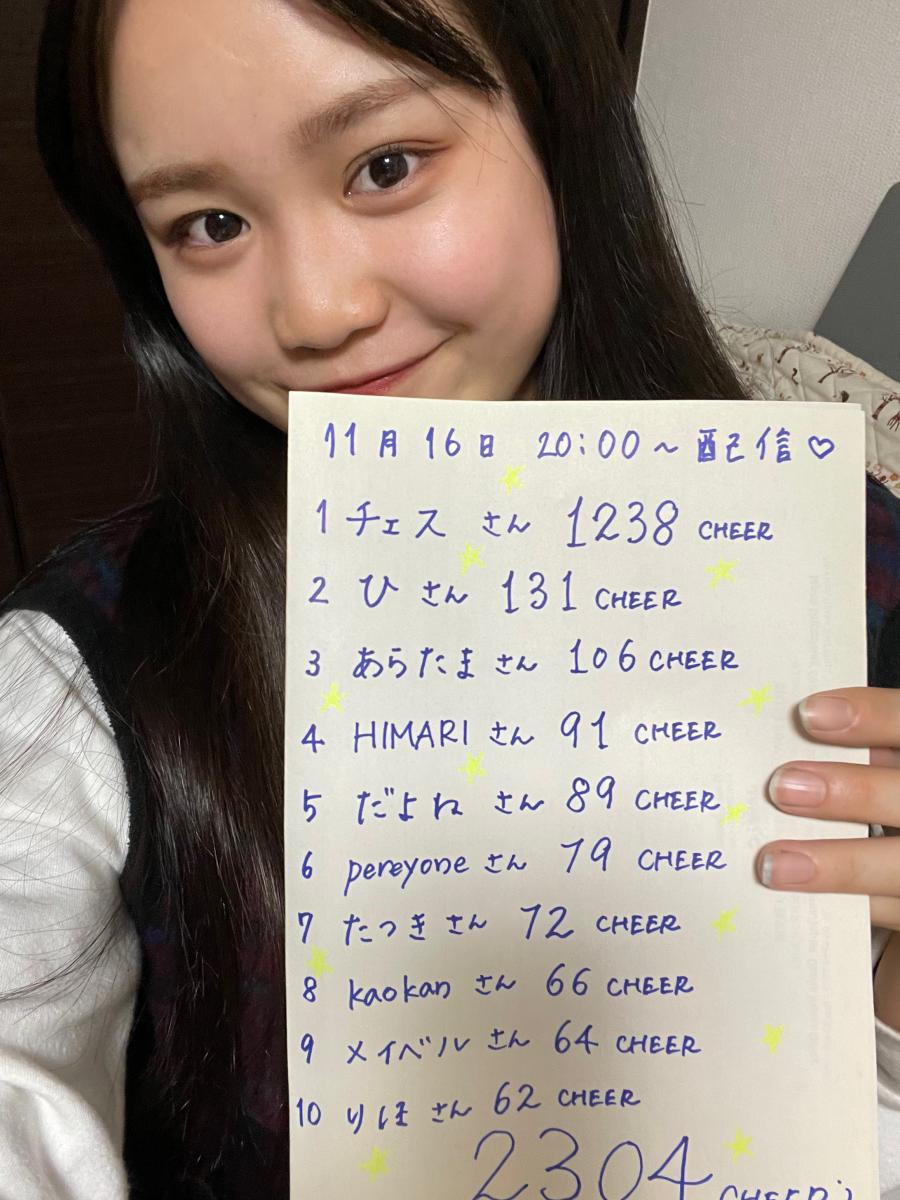 11月16日 20:00~配信♡
1 チェス さん 1238 CHEER
2 ひ さん 131 CHEER
3 あらたま さん 106 CHEER
4 HIMARI さん 91 CHEER
5 だよね さん 89 CHEER
6 pereyone さん 79 CHEER
7 たつき さん 72 CHEER
8 kaokan さん 66 CHEER
9 メイベル さん 64 CHEER
10 りほ さん 62 CHEER
2304 CHEER